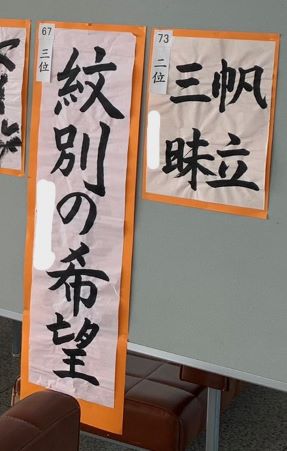 67
三位
紋別の希望
73
二位
帆立
三昧